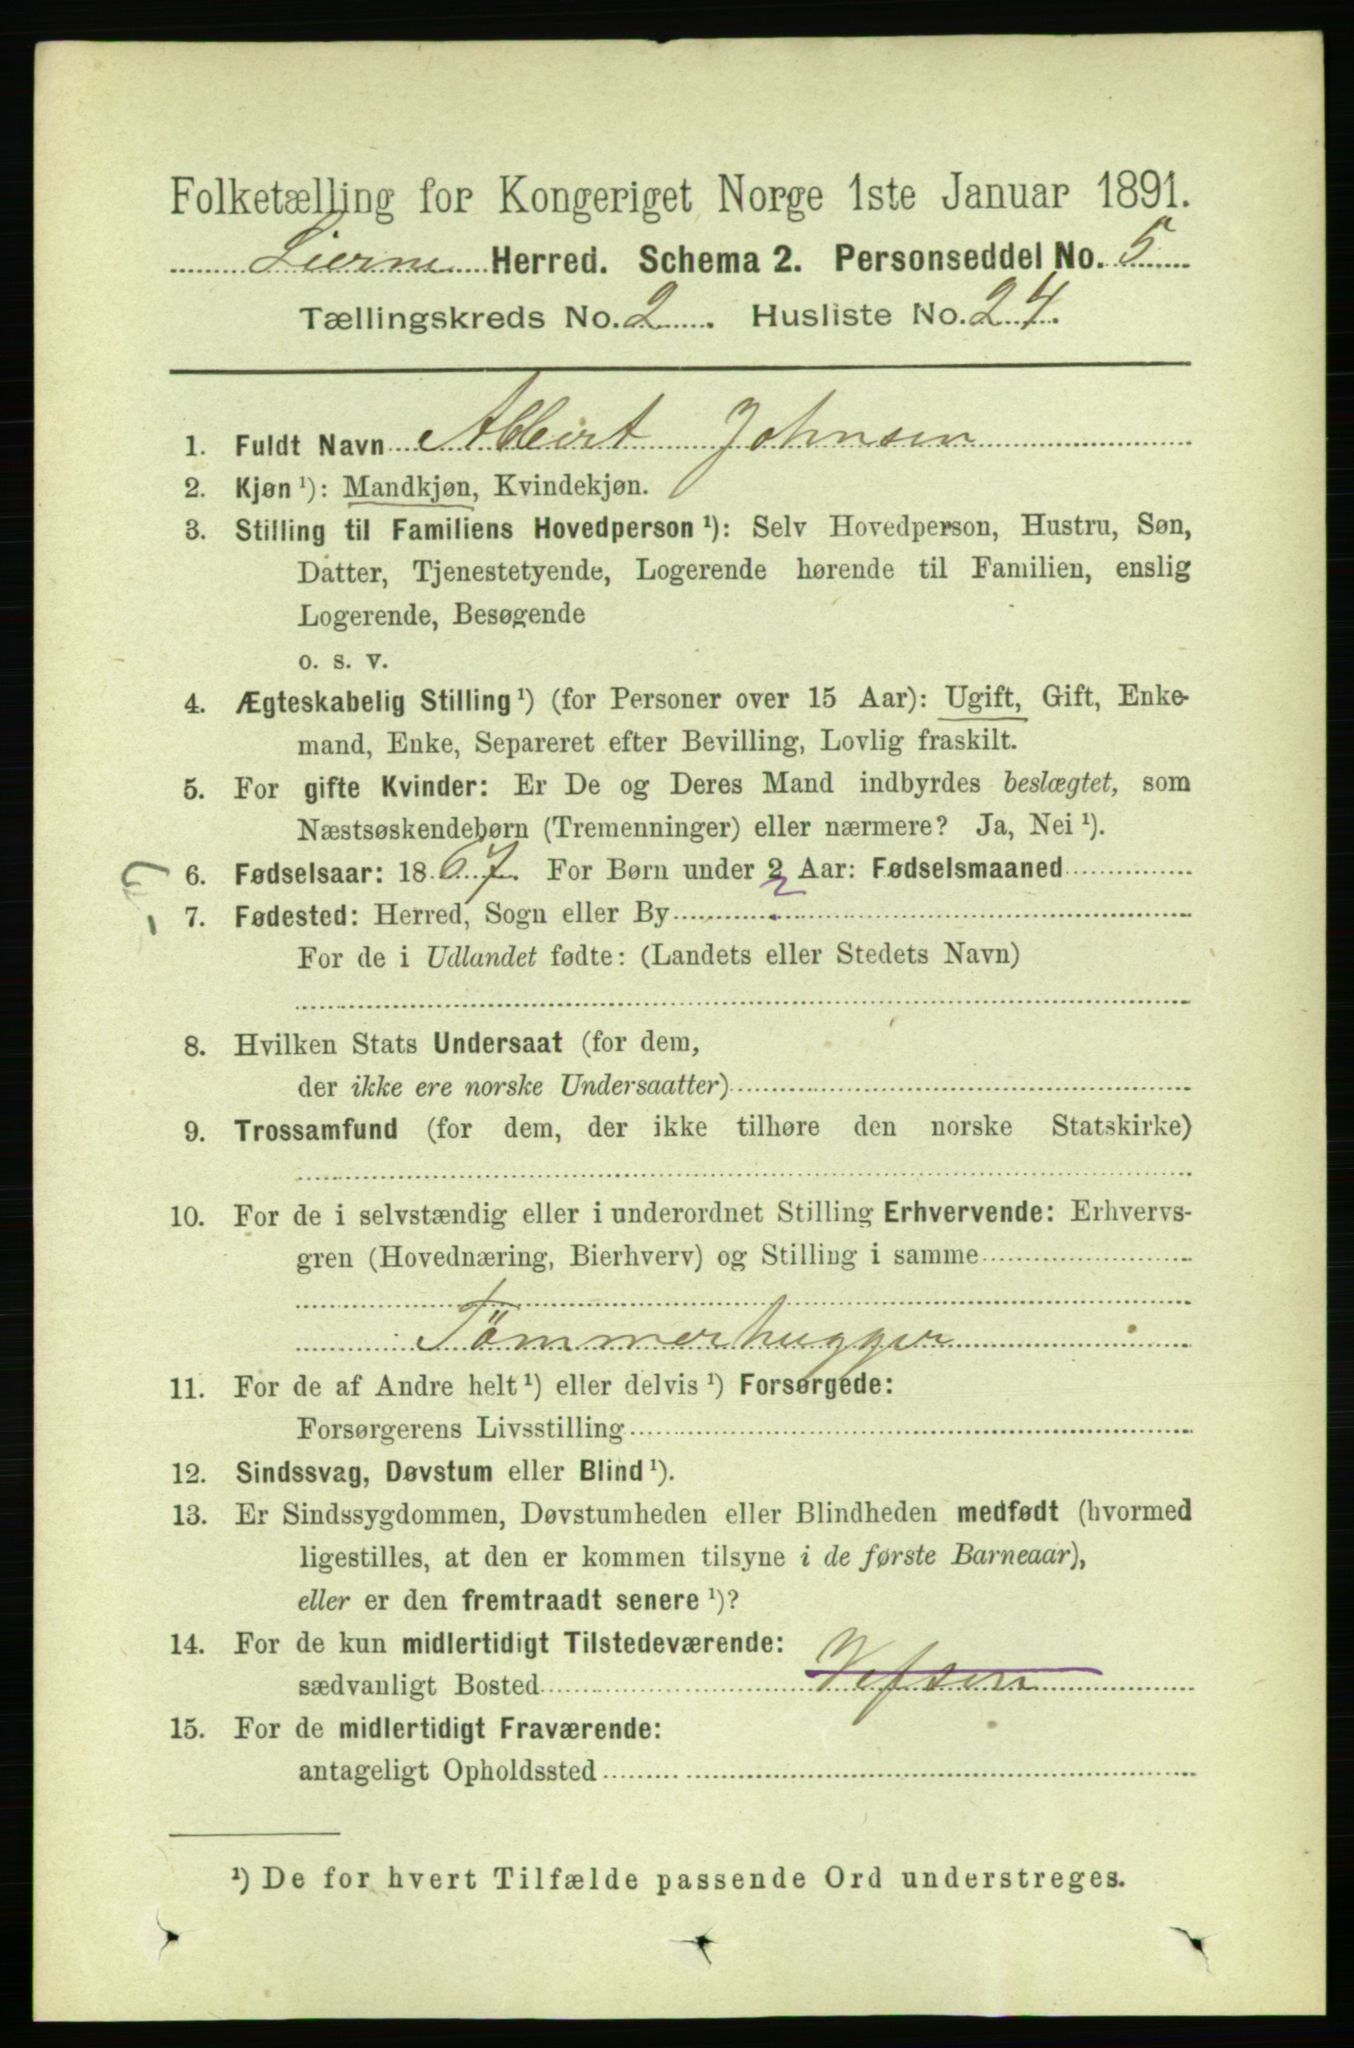 Folketælling for Kongeriget Norge 1ste Januar 1891.
Lierne Herred. Schema 2. Personseddel No. 5
Tællingskreds No. 2. Husliste No. 24.
1. Fuldt Navn Albert Johnsen
2. Kjøn ¹): Mandkjøn, Kvindekjøn.
3. Stilling til Familiens Hovedperson ¹): Selv Hovedperson, Hustru, Søn,
Datter, Tjenestetyende, Logerende hørende til Familien, enslig
Logerende, Besøgende
o. s. v.
4. Ægteskabelig Stilling ¹) (for Personer over 15 Aar): Ugift, Gift, Enke-
mand, Enke, Separeret efter Bevilling, Lovlig fraskilt.
5. For gifte Kvinder: Er De og Deres Mand indbyrdes beslægtet, som
Næstsøskendebørn (Tremenninger) eller nærmere? Ja, Nei ¹).
6. Fødselsaar: 1867. For Børn under 2 Aar: Fødselsmaaned
7. Fødested: Herred, Sogn eller By
For de i Udlandet fødte: (Landets eller Stedets Navn)
8. Hvilken Stats Undersaat (for dem,
der ikke ere norske Undersaatter)
9. Trossamfund (for dem, der ikke tilhøre den norske Statskirke)
10. For de i selvstændig eller i underordnet Stilling Erhvervende: Erhvervs-
gren (Hovednæring, Bierhverv) og Stilling i samme
Tömmerhugger
11. For de af Andre helt ¹) eller delvis ¹) Forsørgede:
Forsørgerens Livsstilling
12. Sindssvag, Døvstum eller Blind ¹).
13. Er Sindssygdommen, Døvstumheden eller Blindheden medfødt (hvormed
ligestilles, at den er kommen tilsyne i de første Barneaar),
eller er den fremtraadt senere ¹)?
14. For de kun midlertidigt Tilstedeværende:
sædvanligt Bosted Vefsen
15. For de midlertidigt Fraværende:
antageligt Opholdssted
¹) De for hvert Tilfælde passende Ord understreges.